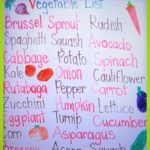 Vegetable List
Brussel Sprout Radish
Spaghetti Squash Avocado
Cabbage Potato Spinach
Kale Onion Cauliflower
Rutabaga Pepper Carrot
Zucchini Pumpkin Lettuce
Eggplant Turnip Cucumber
Corn Asparagus
Broccoli Acorn Squash